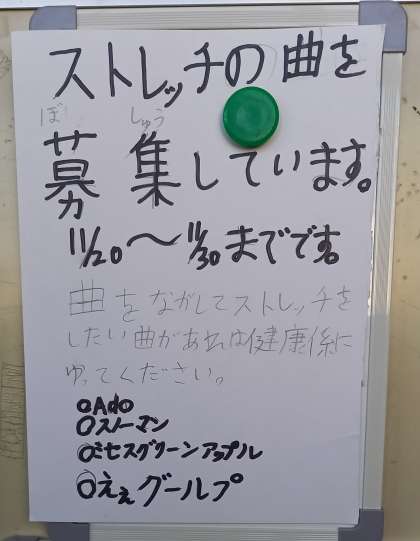 ストレッチの曲を
ぼ しゅう
募集しています。
11/20〜11/30までです。
曲をながしてストレッチを
したい曲があれば健康係に
ゆってください。
○Ado
○スノーマン
○ミセスグリーンアップル
○ええグールプ